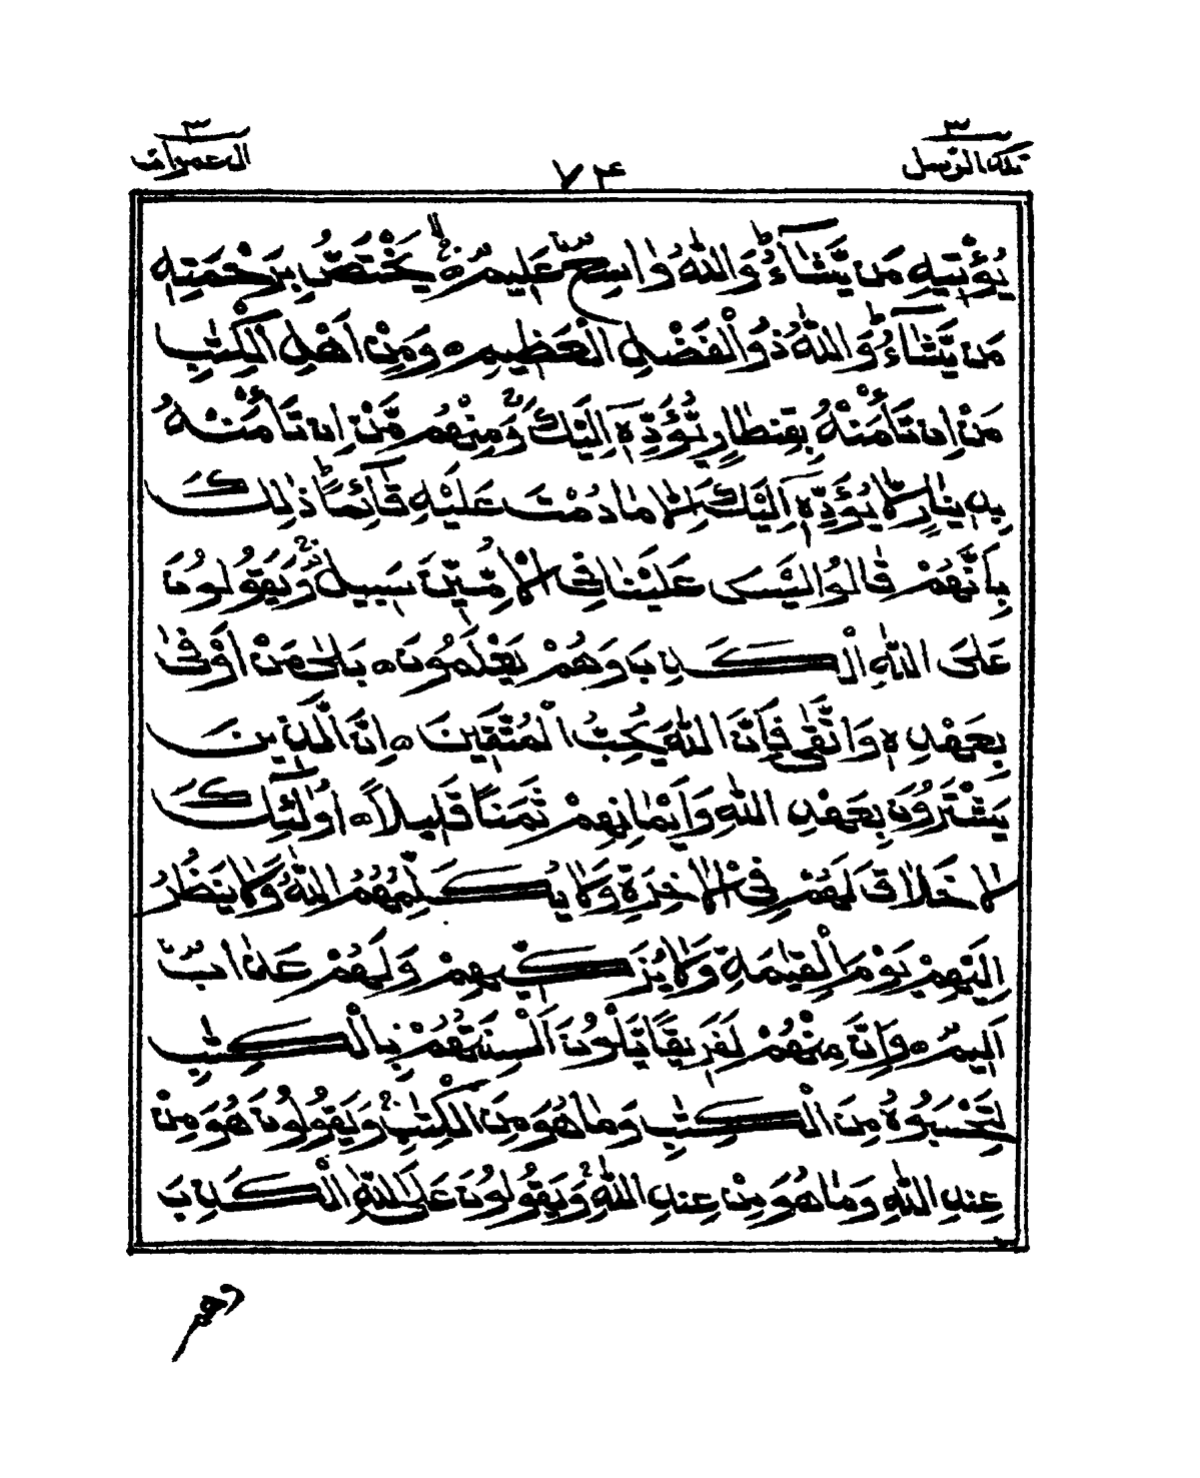 ٣
تلك الرسل
٧٤
٣
اٰل عمران
يُؤْتِيهِ مَن يَّشَآءُ ۗ وَاللّٰهُ وَاسِعٌ عَلِيمٌ ۝ يَخْتَصُّ بِرَحْمَتِهٖ
مَن يَّشَآءُ ۗ وَاللّٰهُ ذُو الْفَضْلِ الْعَظِيمِ ۝ وَمِنْ اَهْلِ الْكِتٰبِ
مَنْ اِن تَأْمَنْهُ بِقِنطَارٍ يُّؤَدِّهٖٓ اِلَيْكَ ۚ وَمِنْهُم مَّنْ اِن تَأْمَنْهُ
بِدِينَارٍ لَّا يُؤَدِّهٖٓ اِلَيْكَ اِلَّا مَا دُمْتَ عَلَيْهِ قَآئِمًا ۗ ذٰلِكَ
بِاَنَّهُمْ قَالُوا لَيْسَ عَلَيْنَا فِى الْاُمِّيّٖنَ سَبِيلٌ ۚ وَيَقُولُونَ
عَلَى اللّٰهِ الْكَذِبَ وَهُمْ يَعْلَمُونَ ۝ بَلٰى مَنْ اَوْفٰى
بِعَهْدِهٖ وَاتَّقٰى فَاِنَّ اللّٰهَ يُحِبُّ الْمُتَّقِينَ ۝ اِنَّ الَّذِينَ
يَشْتَرُونَ بِعَهْدِ اللّٰهِ وَاَيْمَانِهِمْ ثَمَنًا قَلِيلًا ۝ اُولٰٓئِكَ
لَا خَلَاقَ لَهُمْ فِى الْاٰخِرَةِ وَلَا يُكَلِّمُهُمُ اللّٰهُ وَلَا يَنظُرُ
اِلَيْهِمْ يَوْمَ الْقِيٰمَةِ وَلَا يُزَكِّيهِمْ وَلَهُمْ عَذَابٌ
اَلِيمٌ ۝ وَاِنَّ مِنْهُمْ لَفَرِيقًا يَّلْوٗنَ اَلْسِنَتَهُمْ بِالْكِتٰبِ
لِتَحْسَبُوهُ مِنَ الْكِتٰبِ وَمَا هُوَ مِنَ الْكِتٰبِ ۚ وَيَقُولُونَ هُوَ مِنْ
عِندِ اللّٰهِ وَمَا هُوَ مِنْ عِندِ اللّٰهِ ۚ وَيَقُولُونَ عَلَى اللّٰهِ الْكَذِبَ
وهم